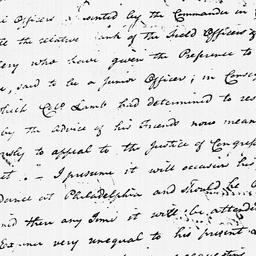 Officers appointed by the Commander in
the relative Rank of the Field Officers of
who have given the Preference to
said to be a Junior Officer; in Conse
which Coll. Lamb had determined to res
by the Advice of his Friends now mean
to appeal to the Justice of Congress
I presume it will occasion his
dance at Philadelphia and should he
there any Time it will be attende
very unequal to his present